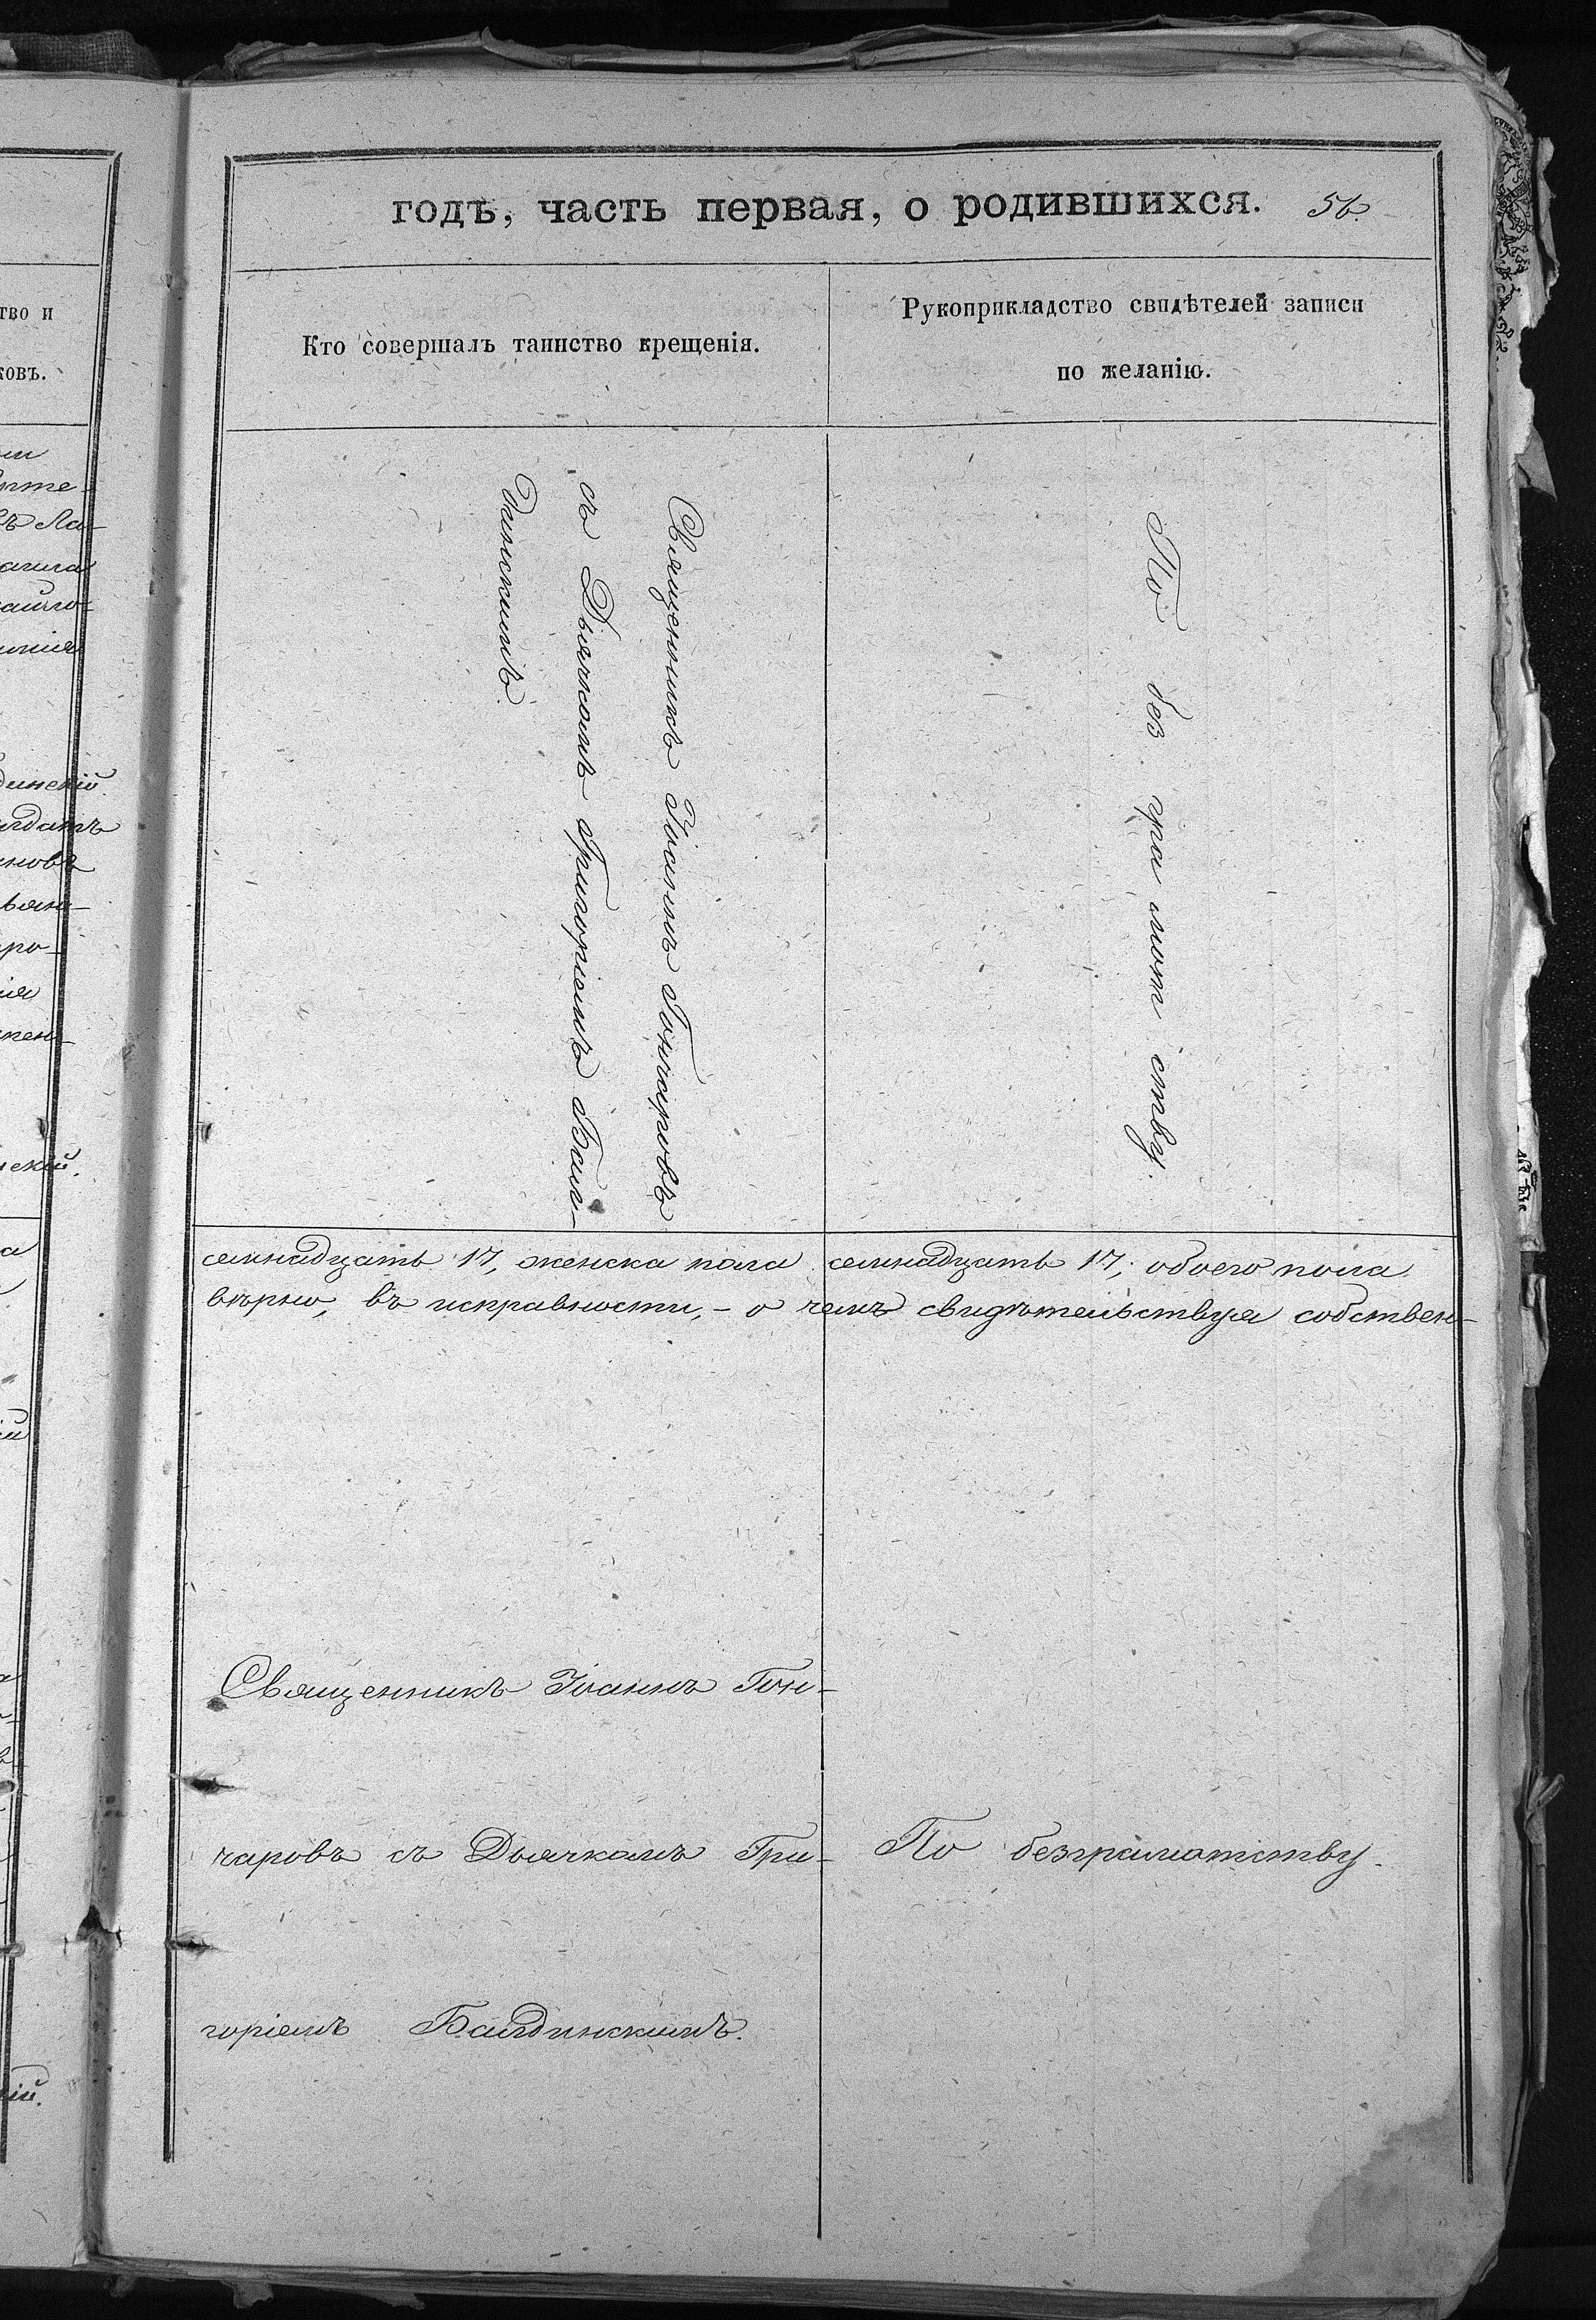 годѣ, часть первая, о родившихся. 56.
Кто совершалъ таинство крещенія.
Рукоприкладство свидѣтелей записи
по желанію.
тво и
ковъ.
Священникъ Іоаннъ Гончаровъ
съ Дьячкомъ Григоріемъ Баги-
динскимъ
По безграмотству.
семнадцать 17, женска пола семнадцать 17; обоего пола
вѣрно, въ исправности, - о чемъ свидѣтельствуя собствен-
Священникъ Іоаннъ Гон-
чаровъ съ Дьячкомъ Гри-
горіемъ Багдинскимъ.
По безграмотству.